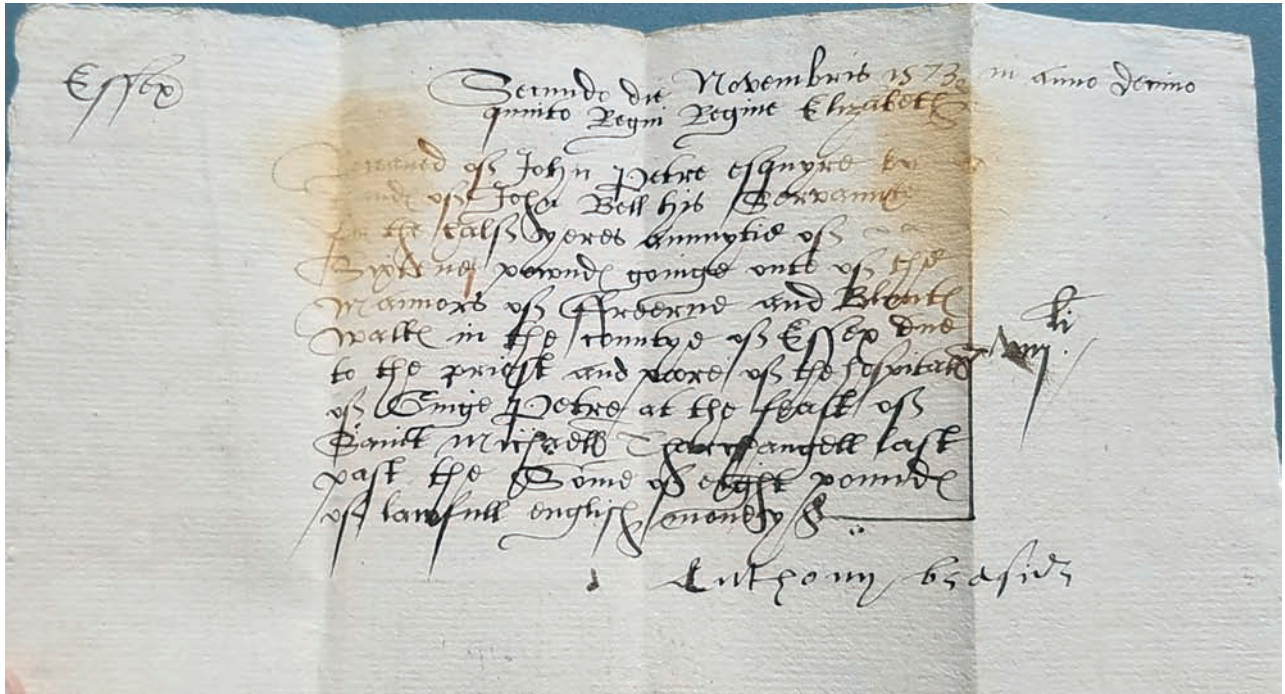 Essex
Secundo die Novembris 1573 in anno decimo
quinto Regni Regine Elizabeth
Receaved of John Petre esquyre by
of John Bell his Servaunt
for the half yeres annuytie of
Sixtene pound goinge oute of the
Mannors of and
walk in the countye of Essex due
to the priest and poore of the hospitall
of Ginge Petre at the feast of
Sainct Michaell Tharchangell last
past the Some of eight pound
of lawfull english money
li
viij
Anthony